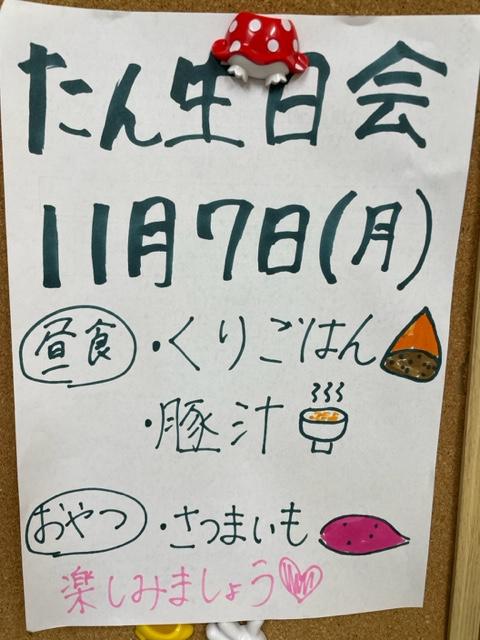 たん生日会
11月7日(月)
昼食 ・くりごはん
・豚汁
おやつ ・さつまいも
楽しみましょう♡